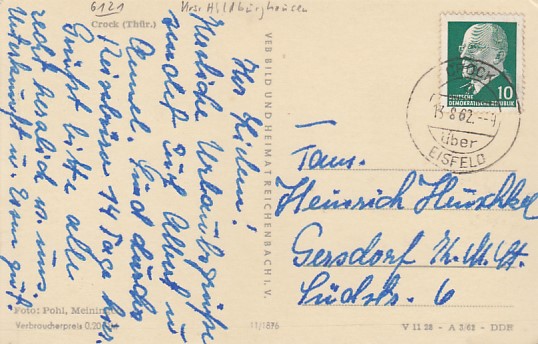 6121
Krs. Hildburghausen
Crock (Thür.)
Ihr Lieben!
Herzliche Urlaubsgrüße
sendet Euch Albert u.
Sind durchs
Reisebüro 14 Tage hier.
Grüßt bitte alle
recht herzlich von uns
Unterkunft u. Essen gut.
Foto: Pohl, Meiningen
Verbraucherpreis 0,20
VEB BILD UND HEIMAT REICHENBACH I. V.
11/1876
DEUTSCHE
DEMOKRATISCHE REPUBLIK
10
CROCK
13.8.62
über
EISFELD
Fam.
Heinrich Heuschkel
Gersdorf
Südstr. 6
V 11 28 - A 3/62 - DDR